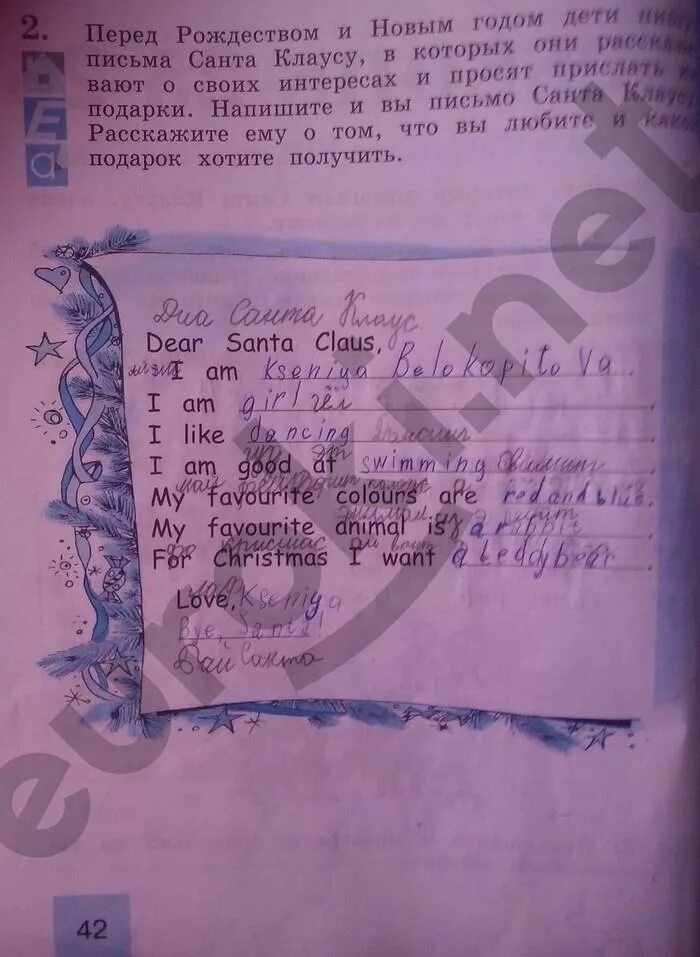 2.
Перед Рождеством и Новым годом дети
письма Санта Клаусу, в которых они расска
вают о своих интересах и просят прислать
подарки. Напишите и вы письмо Санта Клаус
Расскажите ему о том, что вы любите и како
подарок хотите получить.
Диа Санта Клаус
Dear Santa Claus,
I am Kseniya Belokopitova.
I am girl гёл.
I like dancing.
I am good at swimming свиминг.
май
My favourite colours are red and blue.
энимал
My favourite animal is a rabbit.
кристмас ай вонт
For Christmas I want a teddy bear.
лав
Love, Kseniya
Bye, Santa!
Бай Санта
42
euroki.net